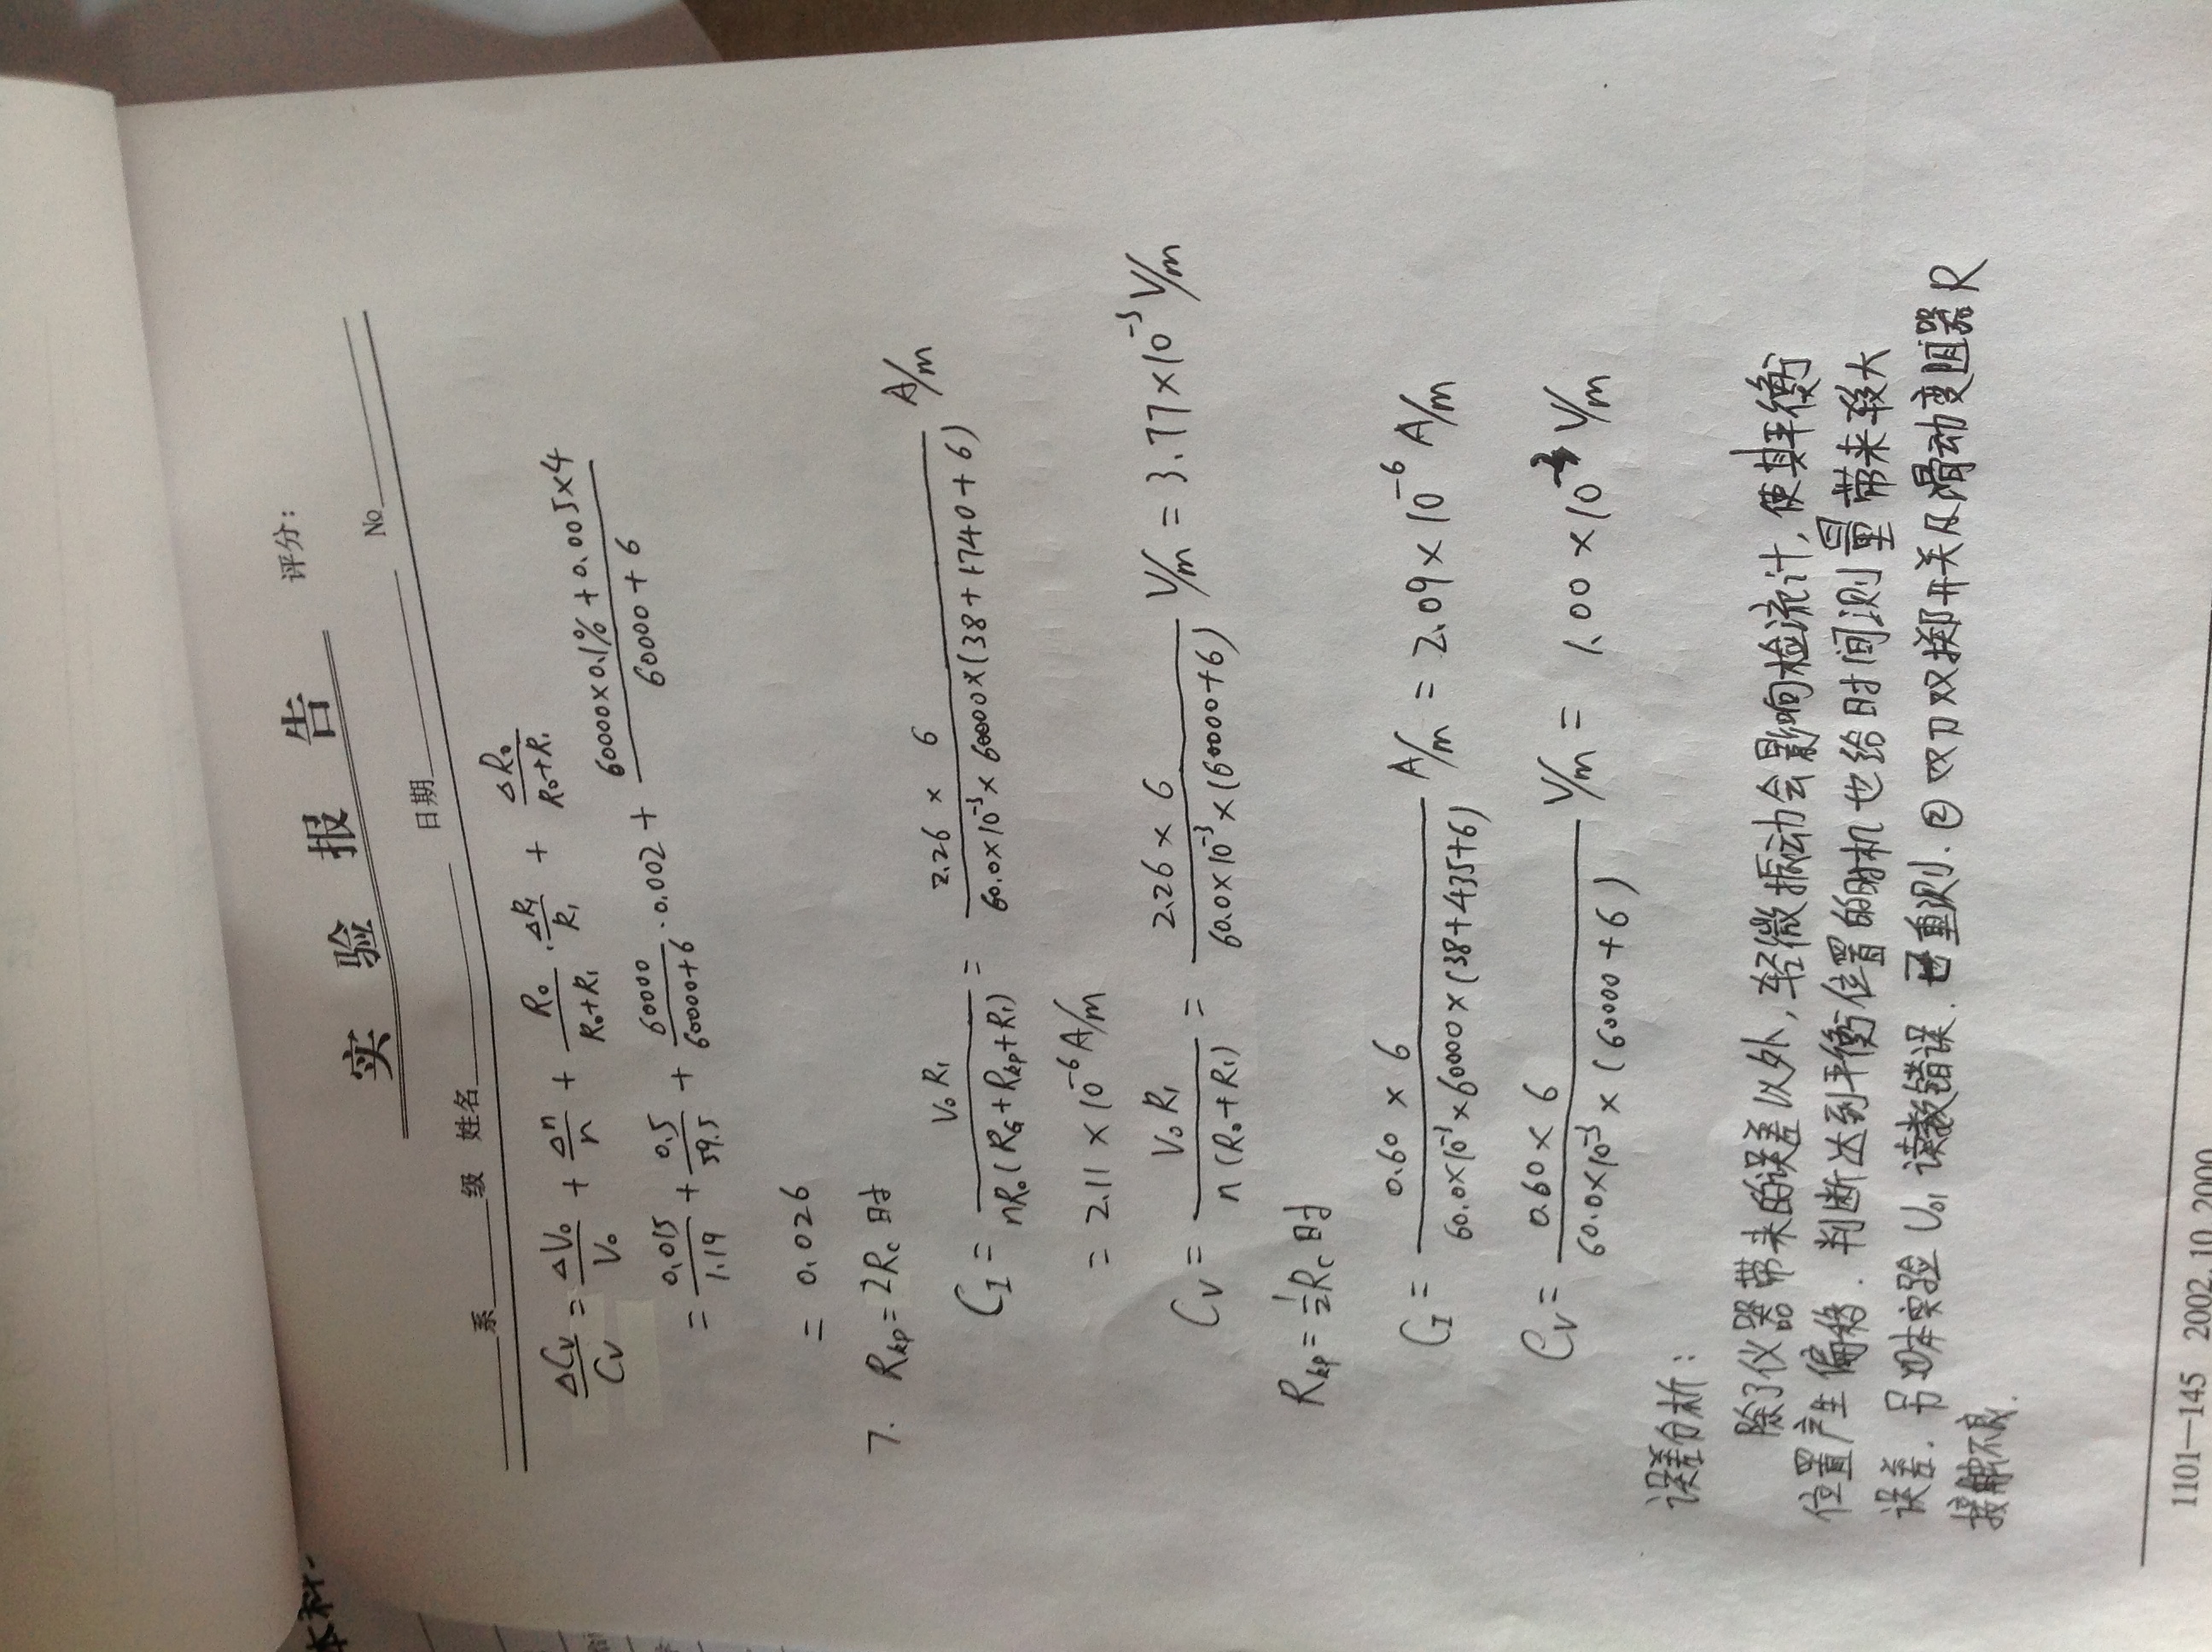 本科
实验报告 评分：
系 级 姓名 日期 No
ΔCv/Cv = ΔV₀/V₀ + Δn/n + R₀/(R₀+R₁) · ΔR₁/R₁ + ΔR₀/(R₀+R₁)
= 0.015/1.19 + 0.5/59.5 + 60000/(60000+6) · 0.002 + (60000×0.1% + 0.005×4)/(60000+6)
= 0.026
7. Rkp = 2Rc 时
C_I = V₀R₁/(nR₀(R_G+Rkp+R₁)) = 2.26 × 6/(60.0×10⁻³×60000×(38+1740+6)) A/m
= 2.11 × 10⁻⁶ A/m
Cv = V₀R₁/(n(R₀+R₁)) = 2.26 × 6/(60.0×10⁻³×(60000+6)) V/m = 3.77×10⁻³ V/m
Rkp = ½Rc 时
C_I = 0.60 × 6/(60.0×10⁻³×60000×(38+435+6)) A/m = 2.09×10⁻⁶ A/m
Cv = 0.60 × 6/(60.0×10⁻³×(60000+6)) V/m = 1.00×10⁻³ V/m
误差分析：
除了仪器带来的误差以外,轻微振动会影响检流计,使其平衡
位置产生偏移.判断达到平衡位置的时机也给时间测量带来较大
误差.另①本实验U₀₁读数错误.已重测.②双刀双掷开关及滑动变阻器R
接触不良.
1101—145 2002.10.2000